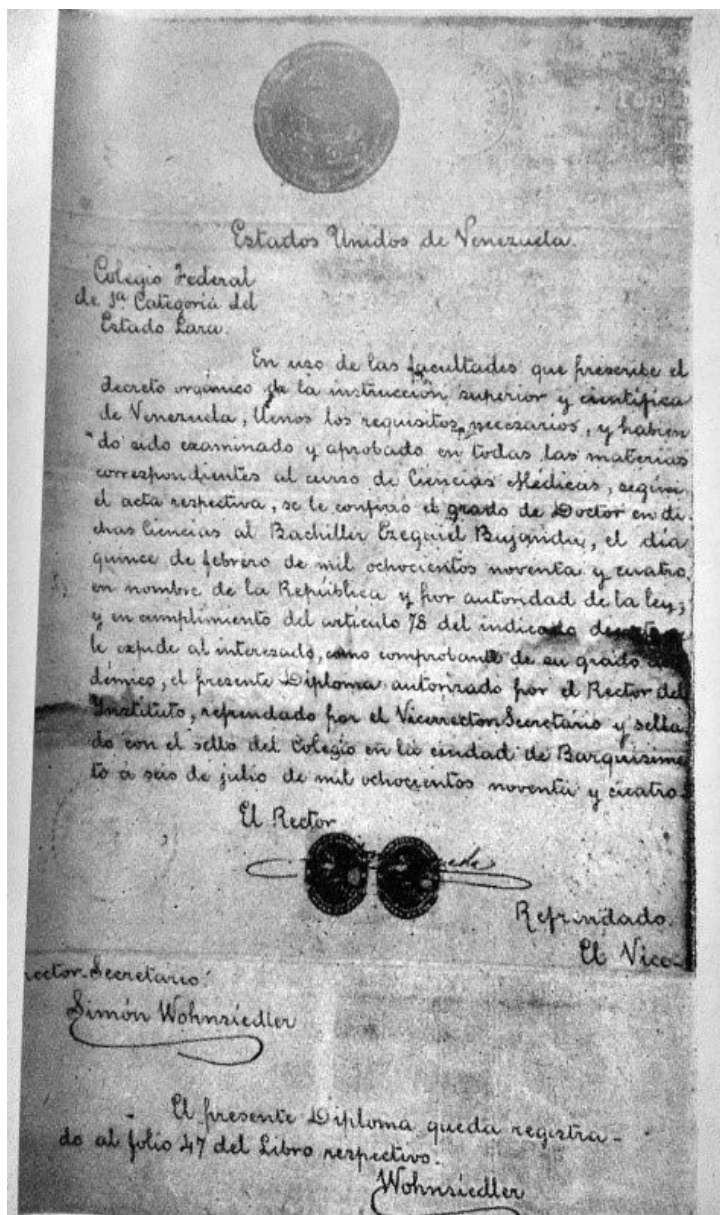 Estados Unidos de Venezuela.
Colegio Federal
de 1ª Categoría del
Estado Lara.
En uso de las facultades que prescribe el
decreto orgánico de la instrucción superior y científica
de Venezuela, llenos los requisitos necesarios, y habien
do sido examinado y aprobado en todas las materias
correspondientes al curso de Ciencias Médicas, según
el acta respectiva, se le confirió el grado de Doctor en di-
chas Ciencias al Bachiller Ezequiel Bujanda, el día
quince de febrero de mil ochocientos noventa y cuatro,
en nombre de la República y por autoridad de la ley;
y en cumplimiento del artículo 78 del indicado
le expide al interesado, como comprobante de su grado
démico, el presente Diploma autorizado por el Rector del
Instituto, refrendado por el Vicerrector Secretario y sella
do con el sello del Colegio en la ciudad de Barquisime
to á seis de julio de mil ochocientos noventa y cuatro.
El Rector
Refrindado.
El Vice-
rrector-Secretario
Simón Wohnsiedler
El presente Diploma queda registra-
do al folio 47 del Libro respectivo.
Wohnsiedler